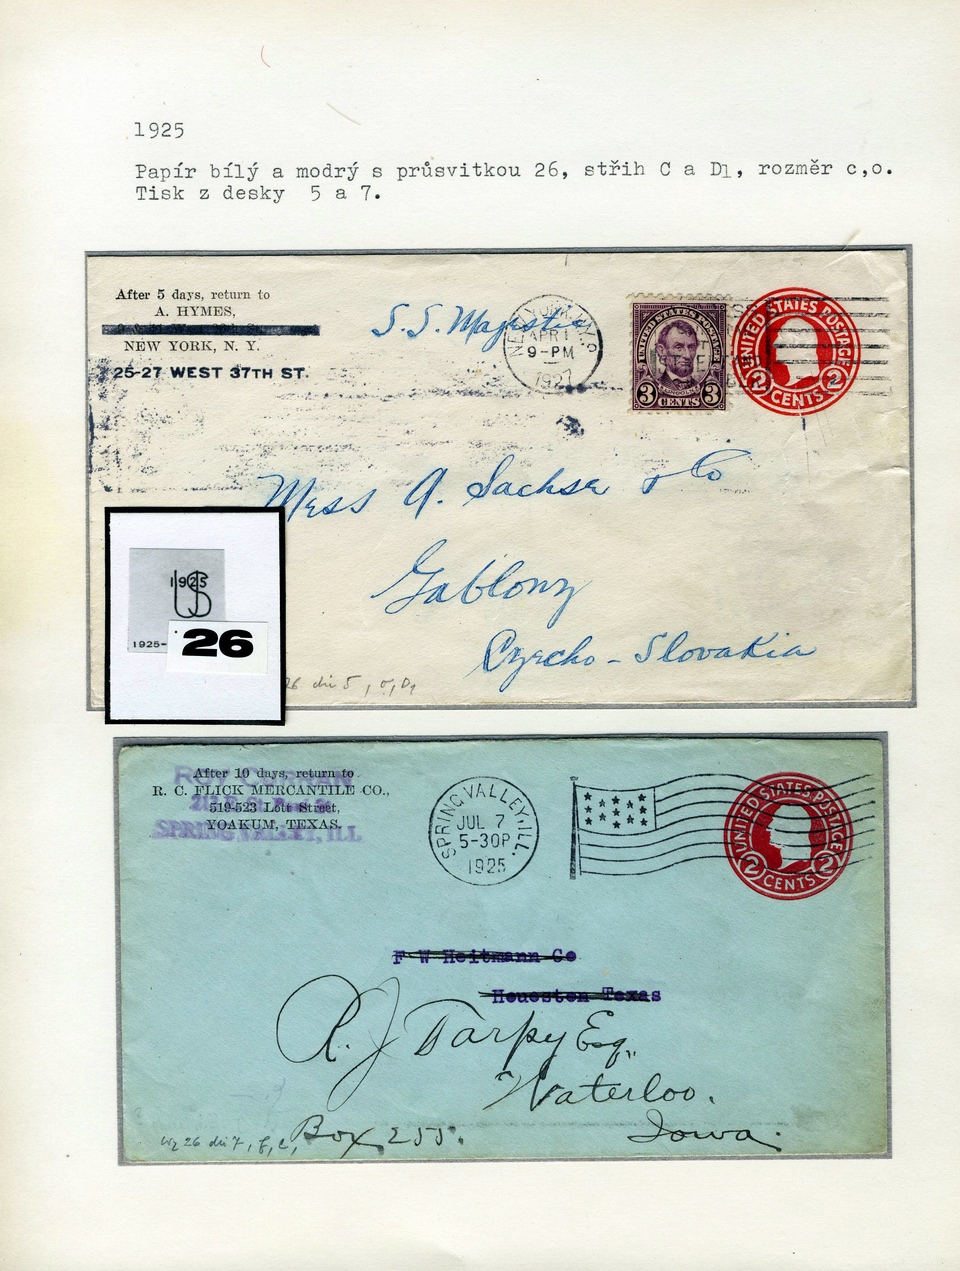 1925
Papír bílý a modrý s průsvitkou 26, střih C a D1, rozměr c,o.
Tisk z desky 5 a 7.
After 5 days, return to
A. HYMES,
NEW YORK, N. Y.
25-27 WEST 37TH ST.
S.S. Majestic
NEW YORK, N.Y.
APR 1
9-PM
1927
UNITED STATES POSTAGE
3 CENTS 3
UNITED STATES POSTAGE
2 CENTS 2
Mess A. Sachse & Co
Gablonz
Czecho-Slovakia
1925
US
1925-
26
26 die 5, o, D1
After 10 days, return to
R. C. FLICK MERCANTILE CO.,
519-523 Lott Street,
YOAKUM, TEXAS.
SPRING VALLEY, ILL
SPRING VALLEY, ILL.
JUL 7
5-30P
1925
UNITED STATES POSTAGE
2 CENTS 2
F W Heitmann Co
Houeston Texas
R. J. Tarpy Esq.,
Waterloo.
Box 255.
Iowa.
wz 26 die 7,